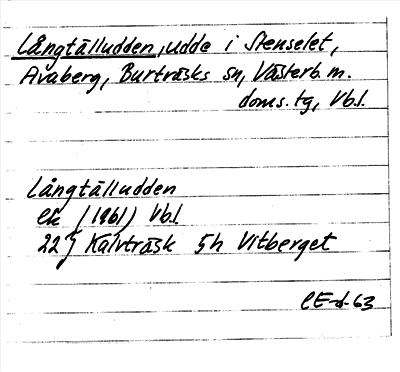 Långtälludden, udde i Stenselet,
Avaberg, Burträsks sn, Västerb. m.
doms. tg, Vb.l.
Långtälludden
ek (1961) Vb.l
22J Kalvträsk 5h Vitberget
CE-d-63